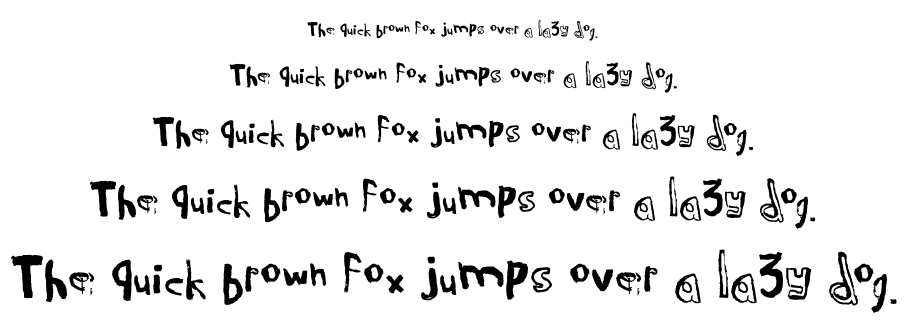 The quick brown fox jumps over a la3y dog.
The quick brown fox jumps over a la3y dog.
The quick brown fox jumps over a la3y dog.
The quick brown fox jumps over a la3y dog.
The quick brown fox jumps over a la3y dog.